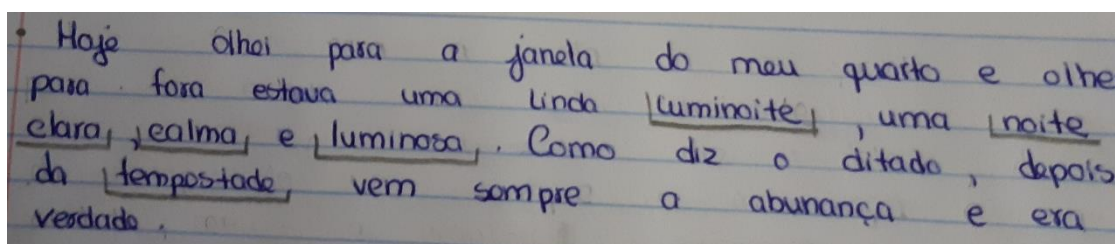 Hoje olhei para a janela do meu quarto e olhe
para fora estava uma linda luminoite, uma noite
clara, calma, e luminosa. Como diz o ditado, depois
da tempestade, vem sempre a abunança e era
verdade.